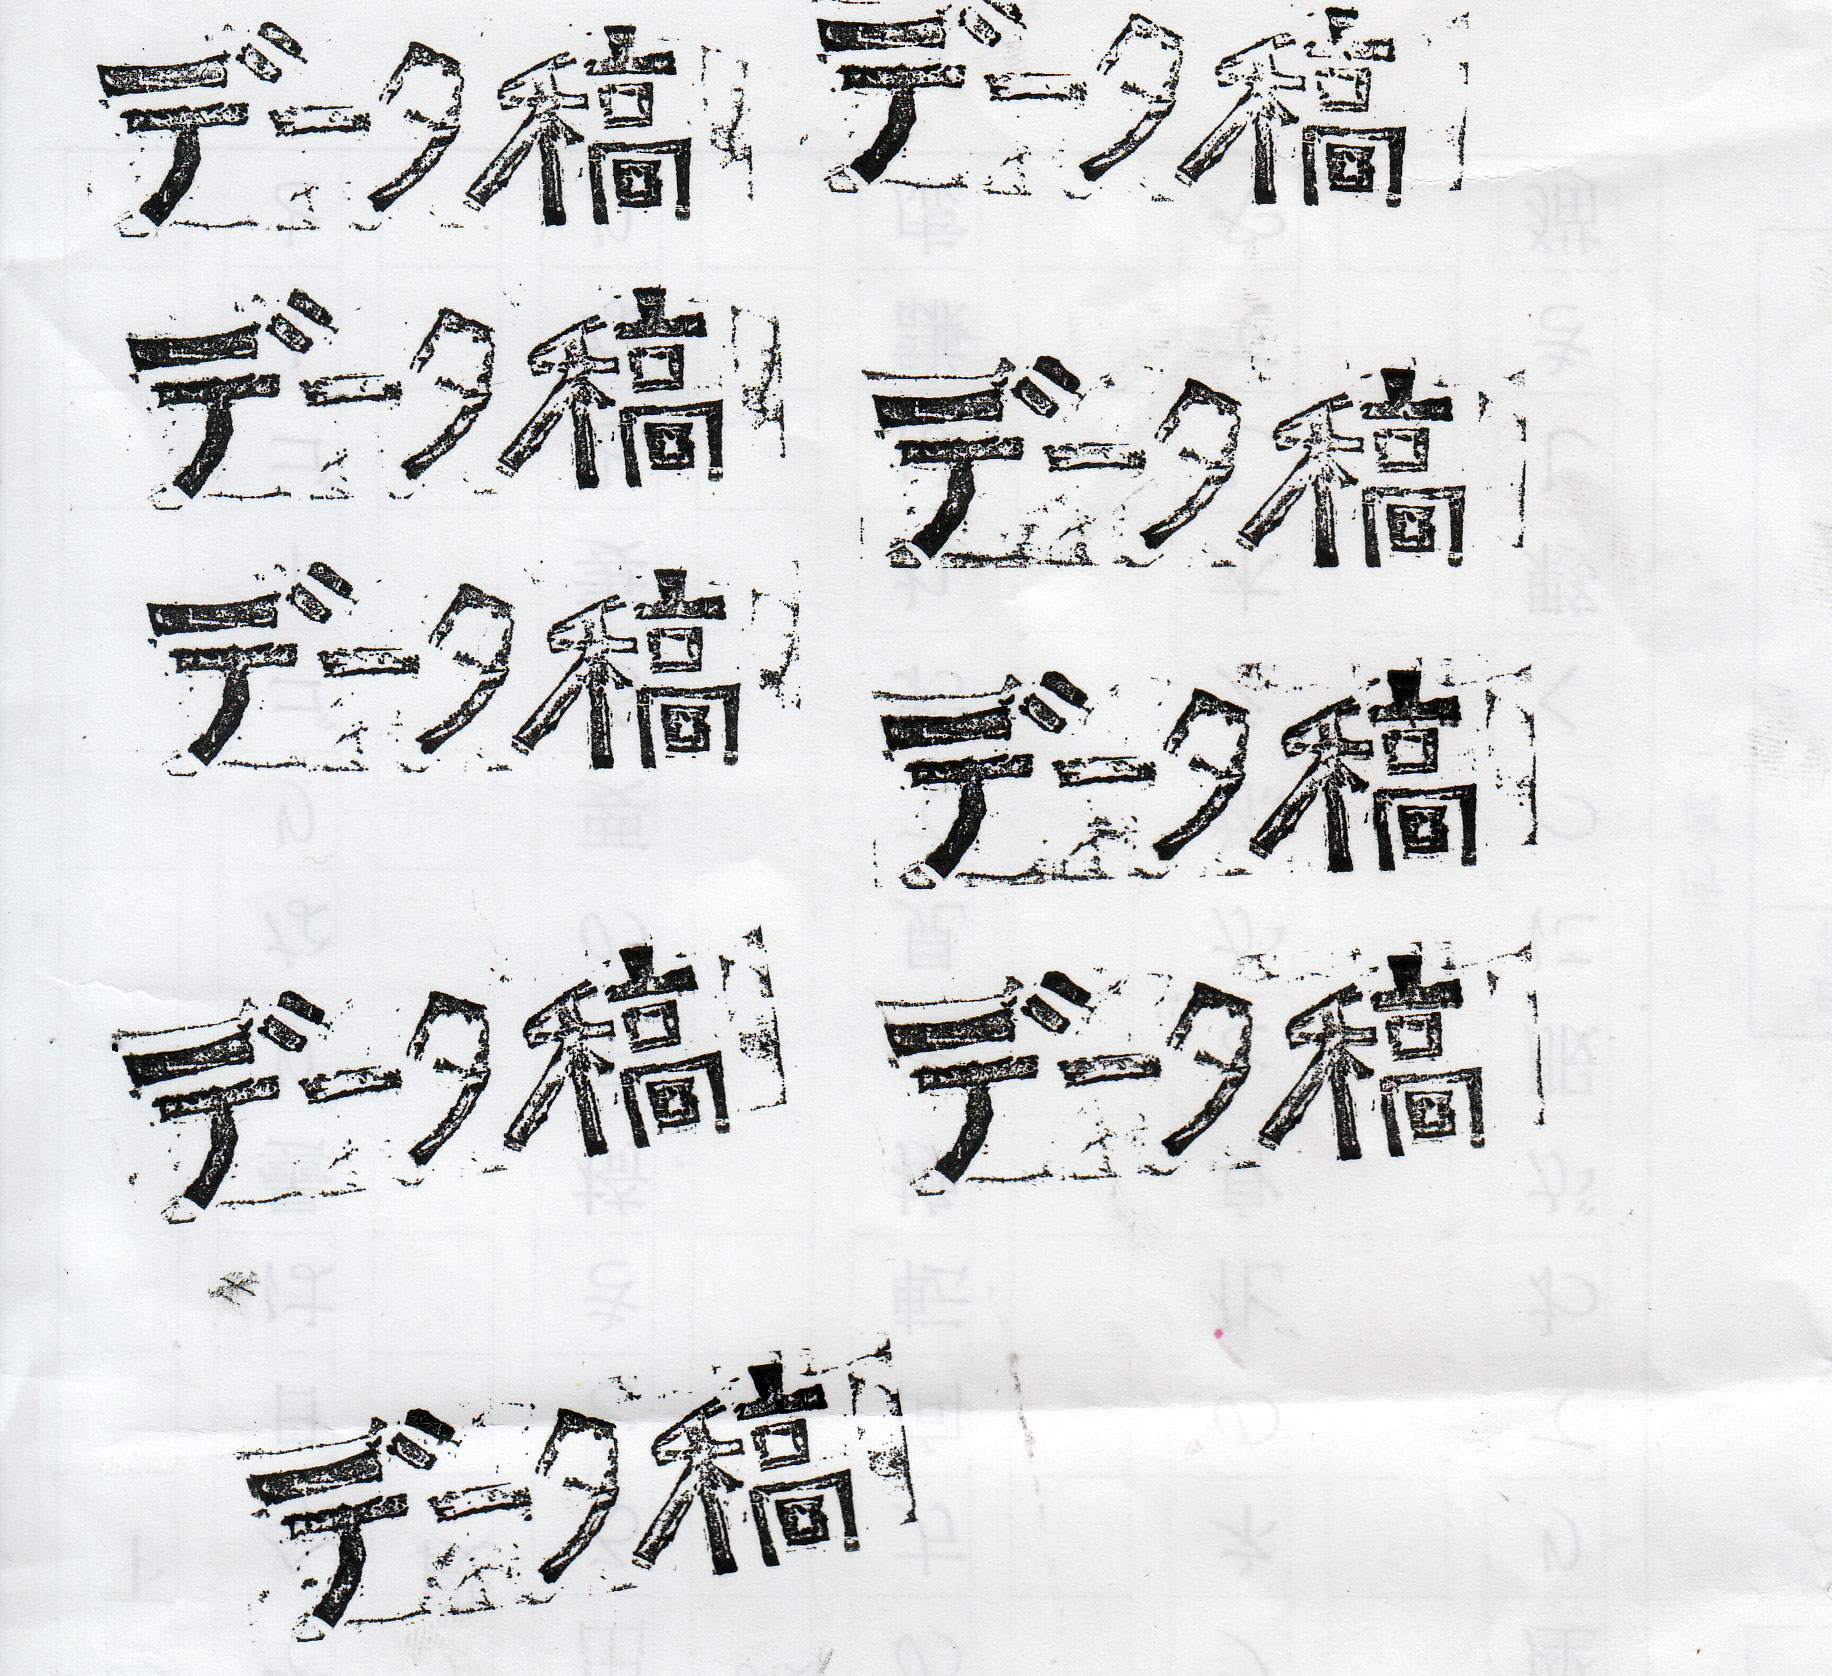 データ稿
データ稿
データ稿
データ稿
データ稿
データ稿
データ稿
データ稿
データ稿